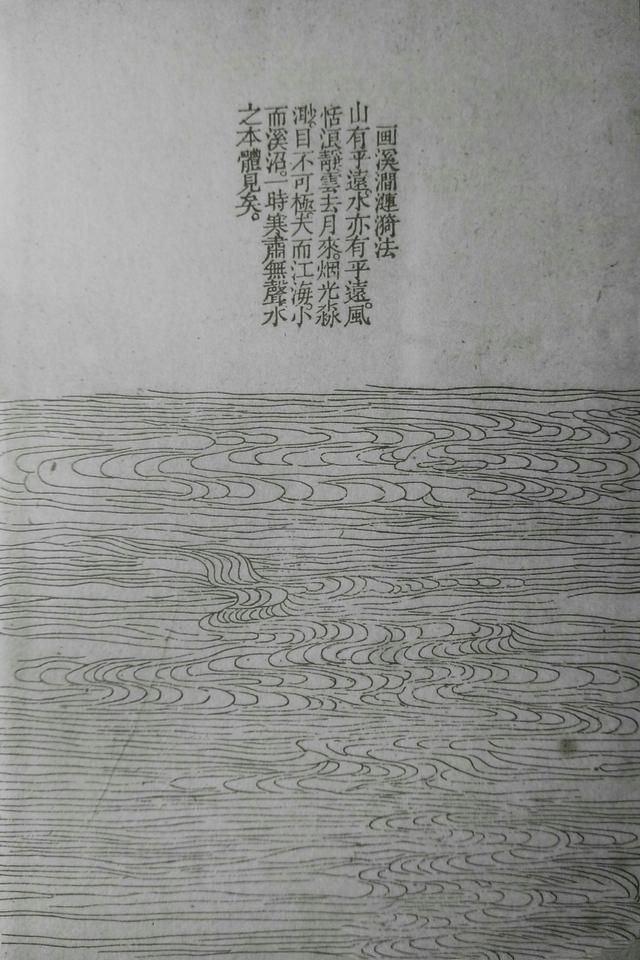 画溪澗漣漪法
山有平遠。水亦有平遠。風
恬浪靜。雲去月來。烟光淼
渺。目不可極。大而江海。小
而溪沼。一時寒肅無聲。水
之本體見矣。